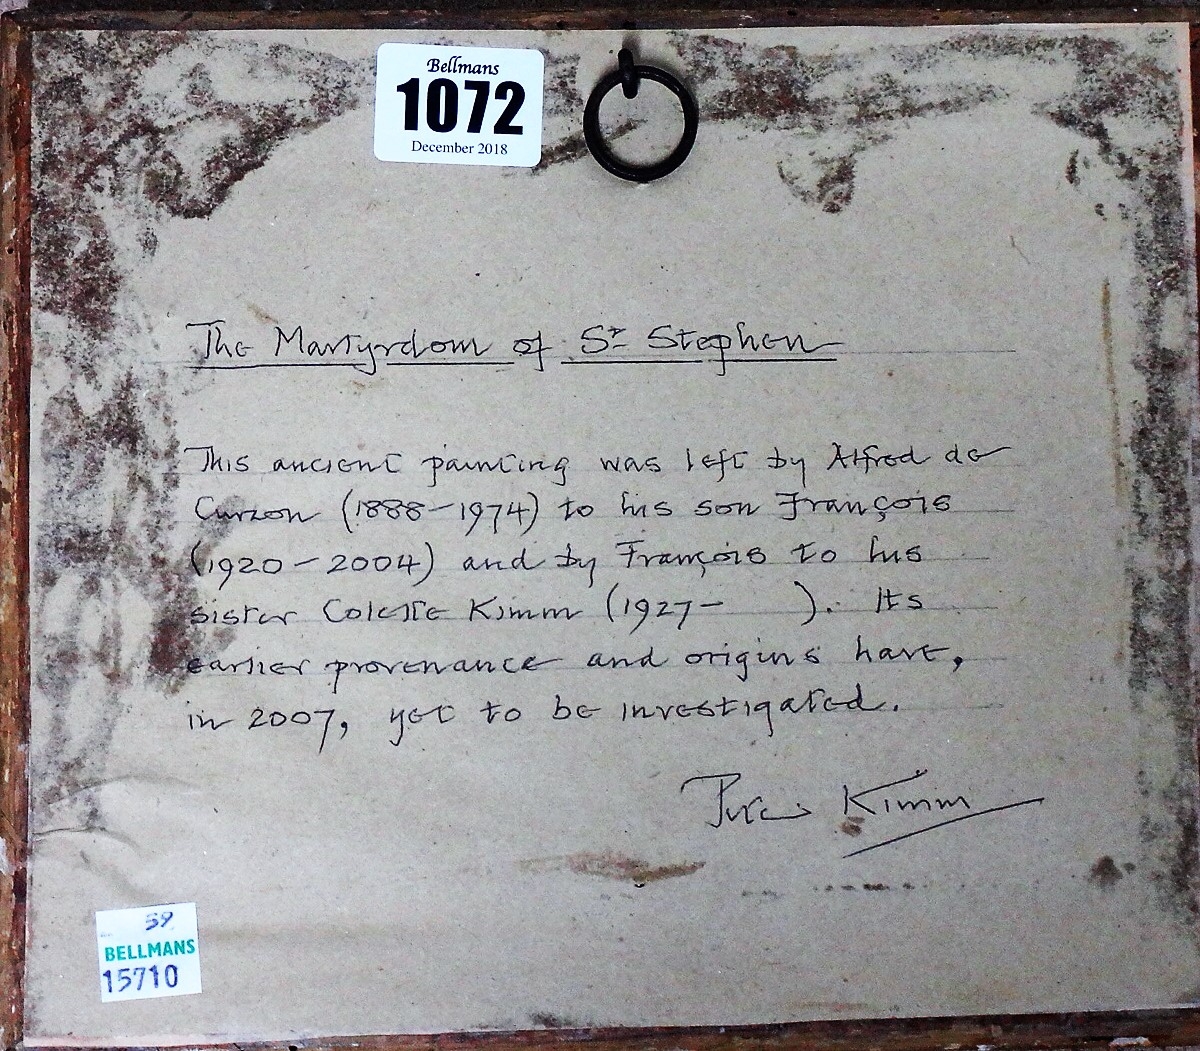 Bellmans
1072
December 2018
The Martyrdom of St Stephen
This ancient painting was left by Alfred de
Curzon (1888-1974) to his son François
(1920-2004) and by François to his
sister Colette Kimm (1927-      ). Its
earlier provenance and origins have,
in 2007, yet to be investigated.
Kimm
59
BELLMANS
15710